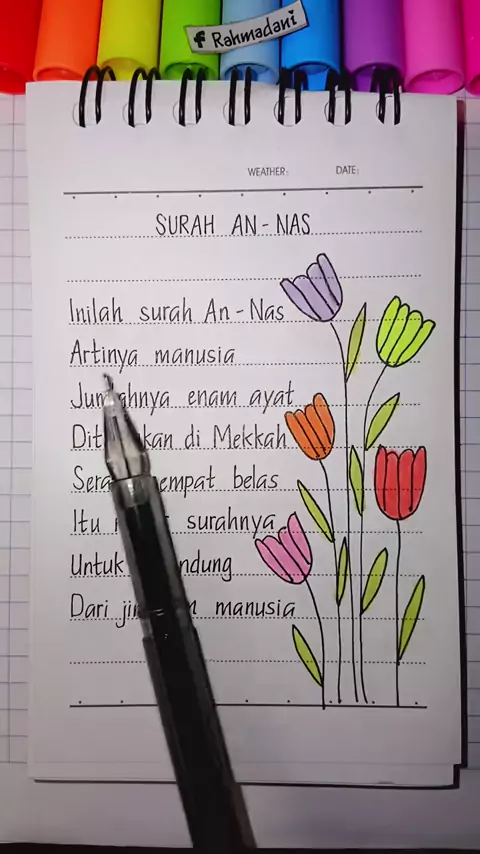 f Rahmadani
WEATHER: DATE:
SURAH AN-NAS
Inilah surah An-Nas
Artinya manusia
Jumlahnya enam ayat
di Mekkah
empat belas
Itu surahnya
Untuk
Dari jin manusia